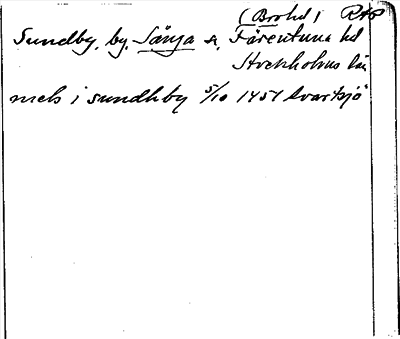 (Brohd) RAP
Sundby, by, Sånga sn, Färentuna hd
Stockholms län
nels i sundhby 5/10 1451 Svartsjö